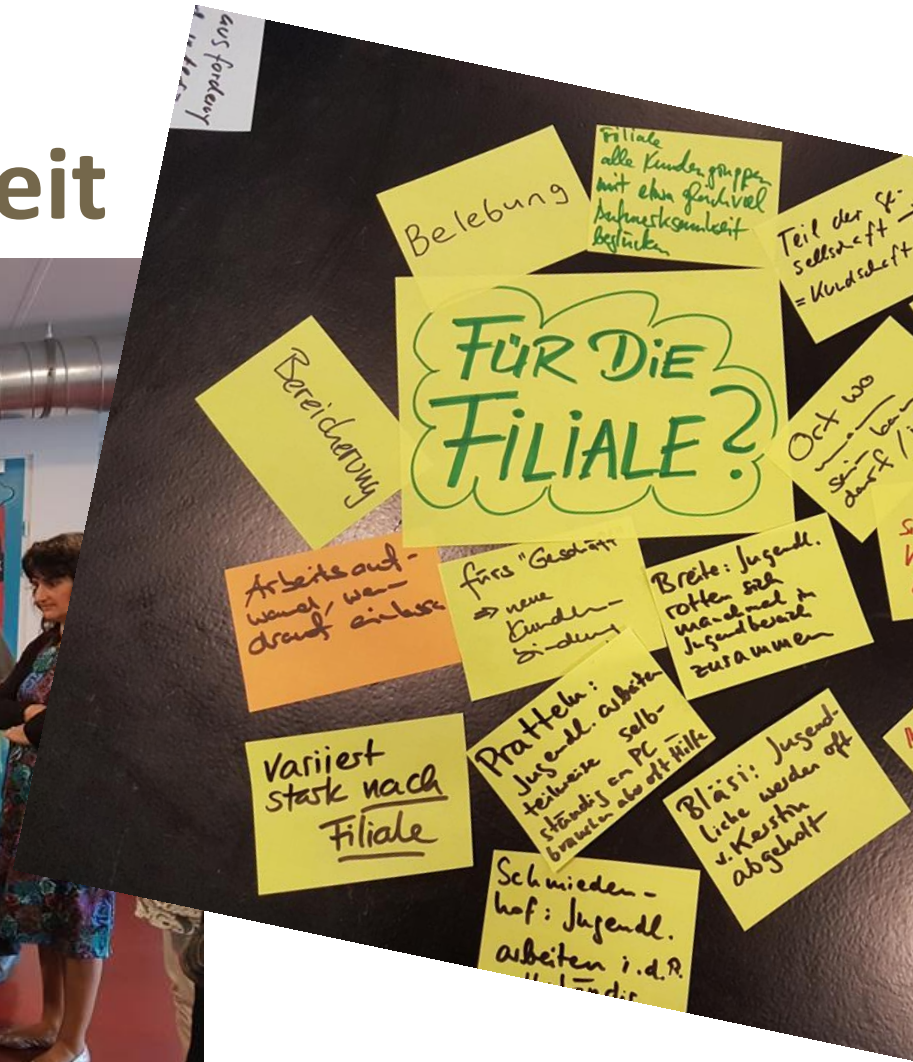 eit
ausforderu
Belebung
Filiale
alle Kundengruppen
mit etwa gleichviel
Aufmerksamkeit
beglücken
Teil der Ge-
sellschaft →
= Kundschaft
FÜR DIE
FILIALE?
Bereicherung
Ort wo
man
sein kann
darf /
Arbeitsauf-
wand, wenn
drauf einlassen
fürs "Geschäft"
⇒ neue
Kunden-
bindung
Breite: Jugendl.
rotten sich
manchmal in
Jugendbereich
zusammen
Variiert
stark nach
Filiale
Pratteln:
Jugendl. arbeiten
teilweise selb-
ständig am PC –
brauchen aber oft Hilfe
Bläsi: Jugend-
liche werden oft
v. Kerstin
abgeholt
Schmieden-
hof: Jugendl.
arbeiten i.d.R.